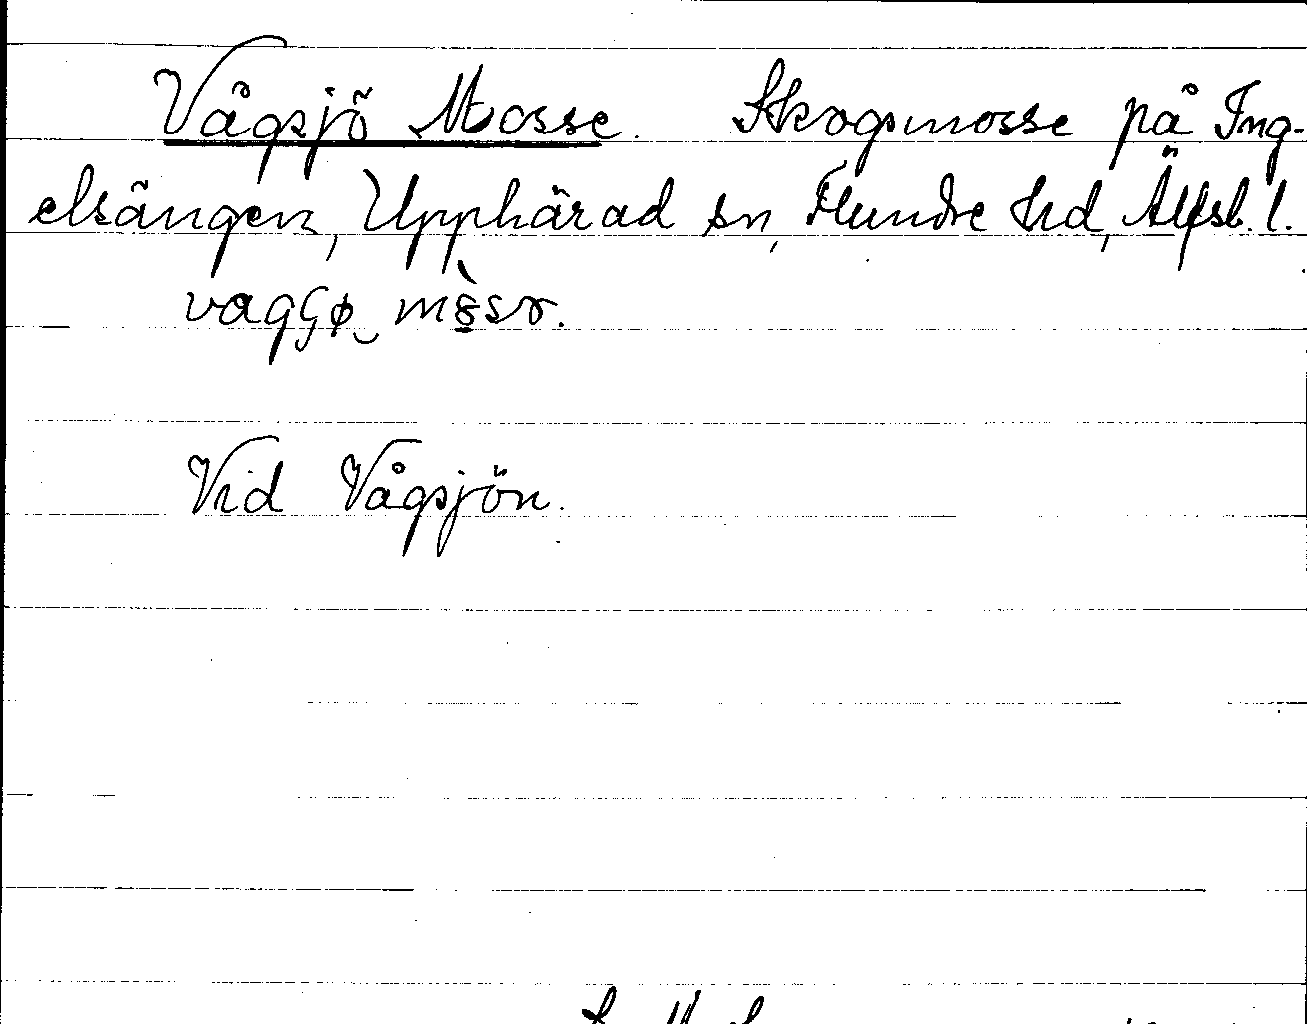 Vågsjö Mosse. Skogsmosse på Ing-
elsängen, Upphärad sn, Flundre hd, Älfsb. l.
Vid Vågsjön.